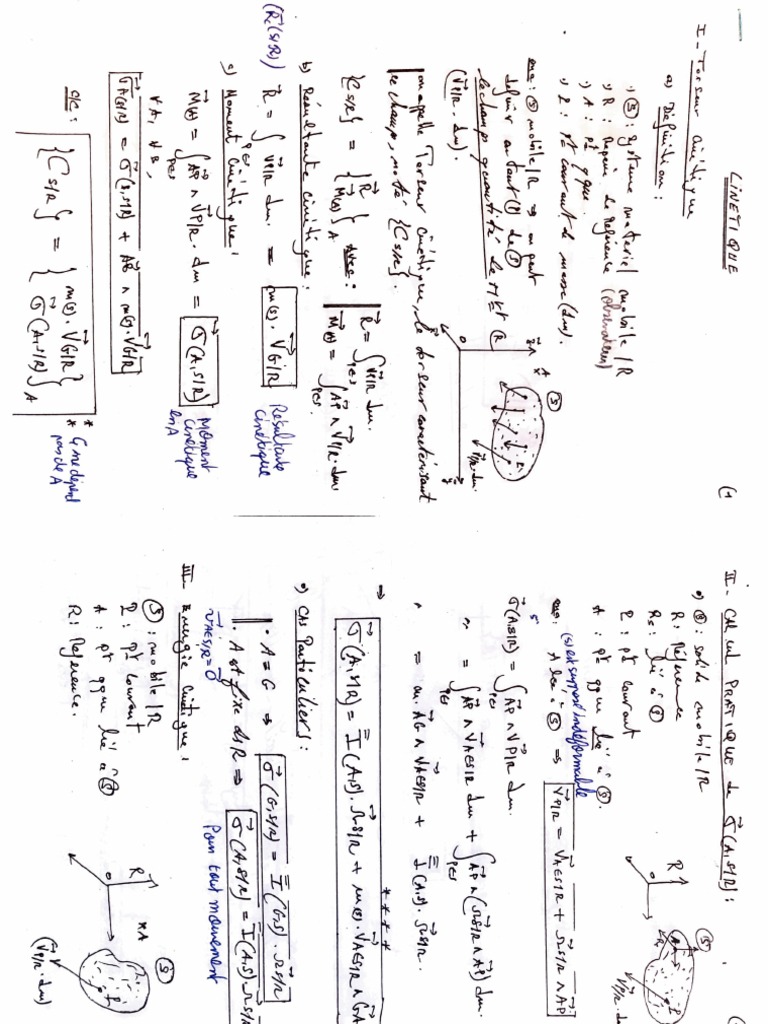 CINETIQUE
(1
I - Torseur Cinétique
a) Définition :
(S) : Système matériel mobile/R
R : Repère de Référence (observateur)
A : pt qque.
P : pt courant de masse (dm).
que : (S) mobile/R ⇒ on peut
définir en tout (P) de (S)
le champ quantité de Mvt
(V⃗P/R . dm).
(S)
R
V⃗P/R.dm
on appelle Torseur Cinétique, le torseur caractérisant
ce champ, noté {C S/R}.
{C S/R} = { R⃗ ; M⃗(A) }A avec : | R⃗ = ∫P∈S V⃗P/R dm.
M⃗(A) = ∫P∈S A⃗P ∧ V⃗P/R . dm
b) Résultante cinétique :
(R⃗c(S/R)) R⃗ = ∫P∈S V⃗P/R dm. = m(S) . V⃗G/R Résultante cinétique
c) Moment Cinétique :
M⃗(A) = ∫P∈S A⃗P ∧ V⃗P/R . dm = σ⃗(A,S/R) Moment cinétique en A
∀A, ∀B,
σ⃗(A,S/R) = σ⃗(B,S/R) + A⃗B ∧ m(S) . V⃗G/R
c/c : {C S/R} = { m(S) . V⃗G/R ; σ⃗(A,S/R) }A
* G ne dépend
* pas de A
II - CALCUL PRATIQUE de σ⃗(A,S/R) :
a) (S) : solide mobile/R
R : Référence
Rs : lié à (S)
P : pt courant
A : pt qque lié à (S).
(S) est supposé indéformable
R
(S)
V⃗P/R . dm
que : A lié à (S) ⇒ V⃗P/R = V⃗A∈S/R + Ω⃗S/R ∧ A⃗P
σ⃗(A,S/R) = ∫P∈S A⃗P ∧ V⃗P/R dm.
" = ∫P∈S A⃗P ∧ V⃗A∈S/R dm + ∫P∈S A⃗P ∧ (Ω⃗S/R ∧ A⃗P) dm.
" = m. A⃗G ∧ V⃗A∈S/R + I̿(A,S) . Ω⃗S/R.
****
⇒ σ⃗(A,S/R) = I̿(A,S) . Ω⃗S/R + m(S) . V⃗A∈S/R ∧ GA
b) CAS Particuliers :
• A ≡ G ⇒ σ⃗(G,S/R) = I̿(G,S) . Ω⃗S/R
• A est fixe ds R ⇒ σ⃗(A,S/R) = I̿(A,S) . Ω⃗S/R
V⃗A∈S/R = 0⃗
Pour tout mouvement
III - Energie Cinétique :
(S) : mobile/R
P : pt courant
A : pt qque lié à (S)
R : Référence.
R
O
xA
(S)
P
(V⃗P/R . dm)